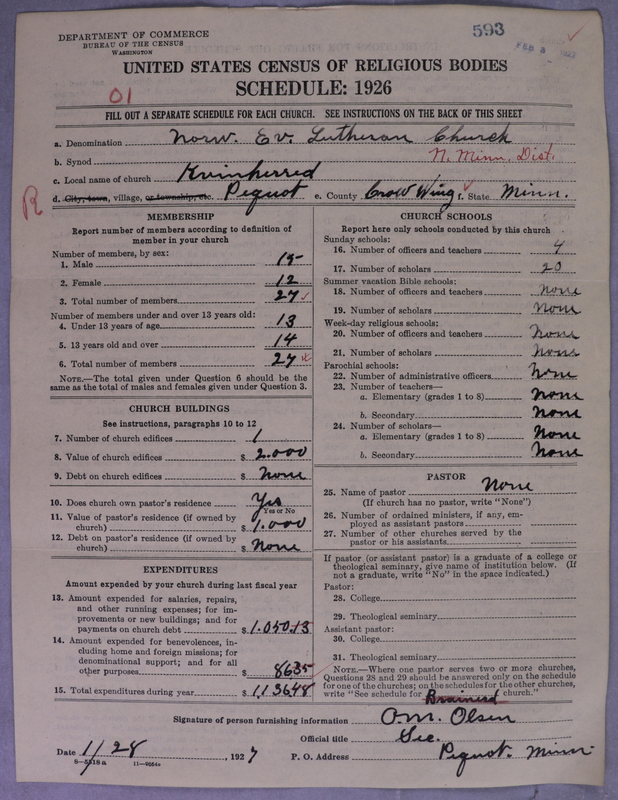 593
FEB 3 1927
DEPARTMENT OF COMMERCE
BUREAU OF THE CENSUS
WASHINGTON
UNITED STATES CENSUS OF RELIGIOUS BODIES
SCHEDULE: 1926
01
FILL OUT A SEPARATE SCHEDULE FOR EACH CHURCH. SEE INSTRUCTIONS ON THE BACK OF THIS SHEET
a. Denomination Norw. Ev. Lutheran Church
b. Synod N. Minn. Dist.
c. Local name of church Kvinherred
R
d. City, town, village, or township, etc. Pequot e. County Crow Wing f. State Minn.
MEMBERSHIP
Report number of members according to definition of member in your church
Number of members, by sex:
1. Male 15
2. Female 12
3. Total number of members 27
Number of members under and over 13 years old:
4. Under 13 years of age 13
5. 13 years old and over 14
6. Total number of members 27
NOTE.—The total given under Question 6 should be the same as the total of males and females given under Question 3.
CHURCH BUILDINGS
See instructions, paragraphs 10 to 12
7. Number of church edifices 1
8. Value of church edifices $ 2.000
9. Debt on church edifices $ None
10. Does church own pastor's residence Yes
Yes or No
11. Value of pastor's residence (if owned by church) $ 1.000
12. Debt on pastor's residence (if owned by church) $ None
EXPENDITURES
Amount expended by your church during last fiscal year
13. Amount expended for salaries, repairs, and other running expenses; for improvements or new buildings; and for payments on church debt $ 1.050.13
14. Amount expended for benevolences, including home and foreign missions; for denominational support; and for all other purposes $ 8635
15. Total expenditures during year $ 1,13648
CHURCH SCHOOLS
Report here only schools conducted by this church
Sunday schools:
16. Number of officers and teachers 4
17. Number of scholars 20
Summer vacation Bible schools:
18. Number of officers and teachers None
19. Number of scholars None
Week-day religious schools:
20. Number of officers and teachers None
21. Number of scholars None
Parochial schools:
22. Number of administrative officers None
23. Number of teachers—
a. Elementary (grades 1 to 8) None
b. Secondary None
24. Number of scholars—
a. Elementary (grades 1 to 8) None
b. Secondary None
PASTOR
25. Name of pastor None
(If church has no pastor, write "None")
26. Number of ordained ministers, if any, employed as assistant pastors
27. Number of other churches served by the pastor or his assistants
If pastor (or assistant pastor) is a graduate of a college or theological seminary, give name of institution below. (If not a graduate, write "No" in the space indicated.)
Pastor:
28. College
29. Theological seminary
Assistant pastor:
30. College
31. Theological seminary
NOTE.—Where one pastor serves two or more churches, Questions 28 and 29 should be answered only on the schedule for one of the churches; on the schedules for the other churches, write "See schedule for Brainerd church."
Signature of person furnishing information O.M. Olsen
Official title Sec.
Date 1/28, 1927 P. O. Address Pequot. Minn.
8-5518a 11-9554a